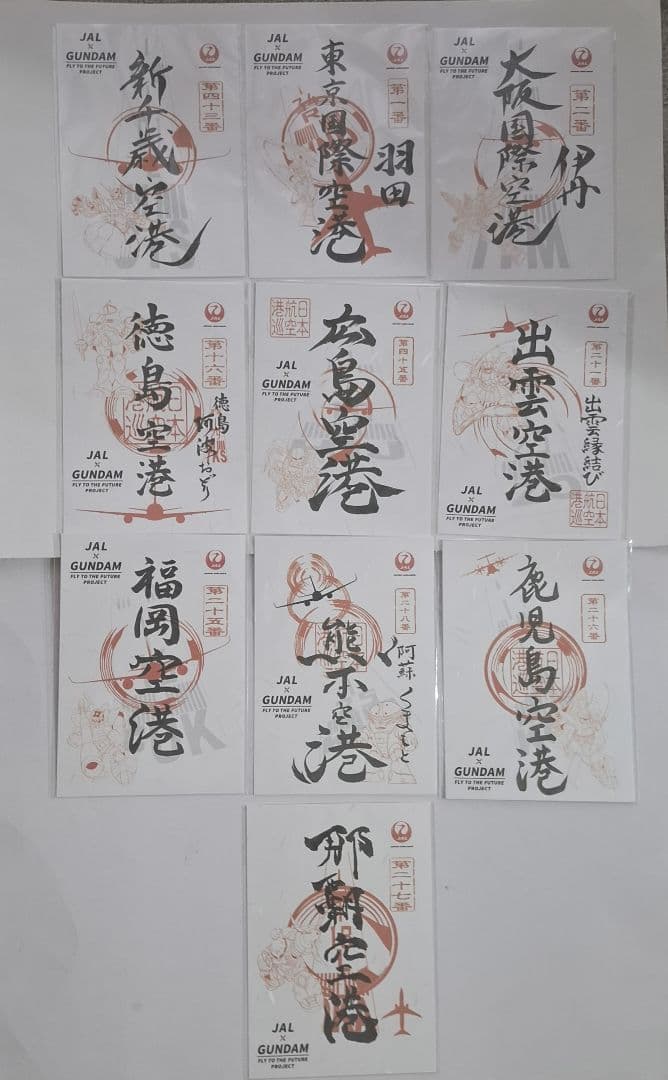 JAL
×
GUNDAM
FLY TO THE FUTURE
PROJECT
JAL
第四十三番
新千歳空港
JAL
×
GUNDAM
FLY TO THE FUTURE
PROJECT
JAL
第一番
東京国際空港
羽田
JAL
×
GUNDAM
FLY TO THE FUTURE
PROJECT
JAL
第二番
大阪国際空港
伊丹
JAL
第十六番
徳島空港
徳島
阿波おどり
日本
航空
港巡
JAL
×
GUNDAM
FLY TO THE FUTURE
PROJECT
日本
航空
港巡
JAL
第四十五番
広島空港
JAL
×
GUNDAM
FLY TO THE FUTURE
PROJECT
JAL
第二十一番
出雲空港
出雲縁結び
日本
航空
港巡
JAL
×
GUNDAM
FLY TO THE FUTURE
PROJECT
JAL
×
GUNDAM
FLY TO THE FUTURE
PROJECT
JAL
第二十五番
福岡空港
JAL
第二十八番
熊本空港
阿蘇くまもと
JAL
×
GUNDAM
FLY TO THE FUTURE
PROJECT
JAL
第二十六番
鹿児島空港
JAL
×
GUNDAM
FLY TO THE FUTURE
PROJECT
JAL
第二十七番
那覇空港
JAL
×
GUNDAM
FLY TO THE FUTURE
PROJECT